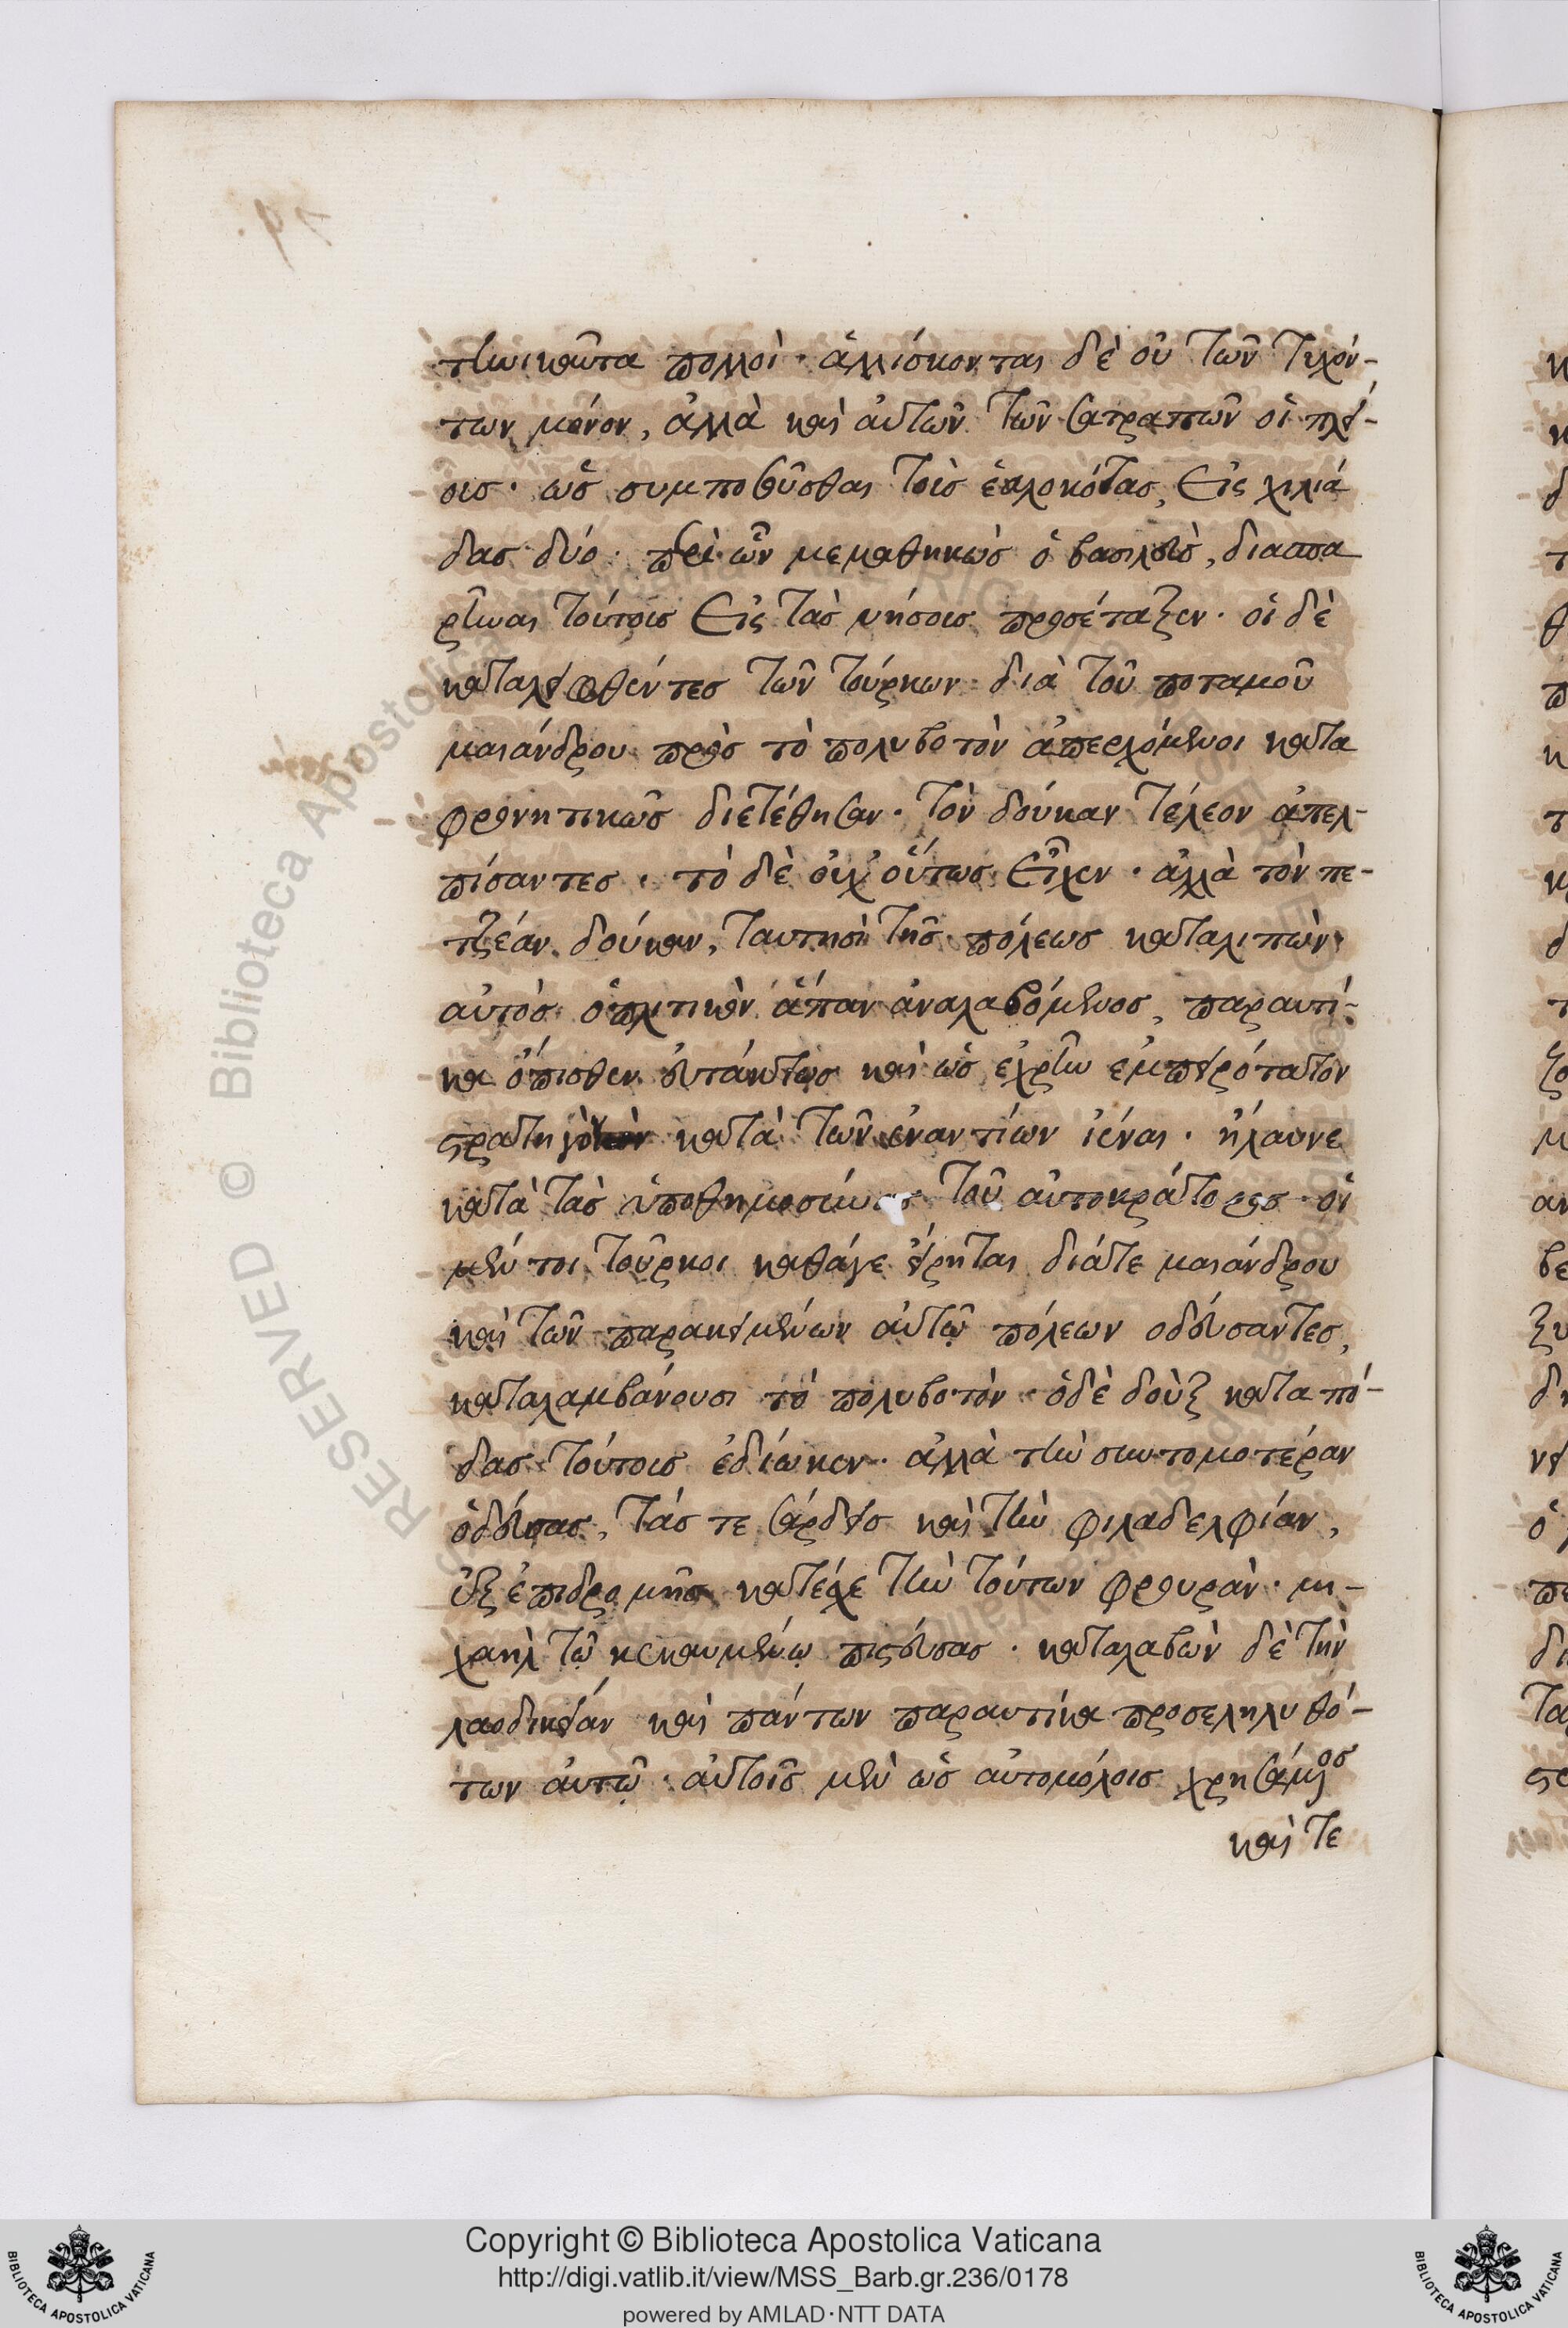 τηνικαῦτα πολλοὶ· ἁλλίσκονται δὲ οὐ τῶν τυχόν-
των μόνον, ἀλλὰ καὶ αὐτῶν τῶν σατραπῶν οἱ πλεί-
ους· ὡς συμποσοῦσθαι τοὺς ἑαλοκότας, εἰς χιλιά
δας δύο· περὶ ὧν μεμαθηκὼς ὁ βασιλεὺς, διασπα
ρῆναι τούτους εἰς τὰς νήσους προσέταξεν· οἱ δὲ
καταλειφθέντες τῶν τούρκων διὰ τοῦ ποταμοῦ
μαιάνδρου πρὸς τὸ πολυβοτὸν ἀπερχόμενοι κατα
φρονητικῶς διετέθησαν· τὸν δούκαν τέλεον ἀπελ-
πίσαντες· τὸ δὲ οὐχ οὕτως εἶχεν· ἀλλὰ τὸν πε-
τζέαν δούκαν, ταυτησὶ τῆς πόλεως καταλιπὼν
αὐτὸς ὁπλιτικὸν ἅπαν ἀναλαβόμενος, παραυτί-
κα ὄπισθεν εὐτάκτως καὶ ὡς ἐχρῆν ἐμπειρότατον
στρατηγὸν κατὰ τῶν ἐναντίων ἰέναι· ἤλαυνε
κατὰ τὰς ὑποθημοσύνας τοῦ αὐτοκράτορος· οἱ
μέν τοι τοῦρκοι καθάγε εἴρηται διάτε μαιάνδρου
καὶ τῶν παρακειμένων αὐτῷ πόλεων οδεύσαντες,
καταλαμβάνουσι τὸ πολυβοτὸν· ὁδὲ δοὺξ κατα πό-
δας τούτους ἐδίωκεν· ἀλλὰ τὴν συντομοτέραν
ὁδεύσας, τάς τε σάρδεις καὶ τὴν φιλαδελφίαν,
ἐξ ἐπιδρομῆς κατέσχε τὴν τούτων φρουρὰν· μι-
χαὴλ τῷ κεκαυμένῳ πιστεύσας· καταλαβὼν δὲ τὴν
λαοδικείάν καὶ πάντων παραυτίκα προσεληλυθό-
των αὐτῷ· αὐτοῖς μὲν ὡς αὐτομόλοις χρησάμενος
καὶ τε
Copyright © Biblioteca Apostolica Vaticana
http://digi.vatlib.it/view/MSS_Barb.gr.236/0178
powered by AMLAD·NTT DATA